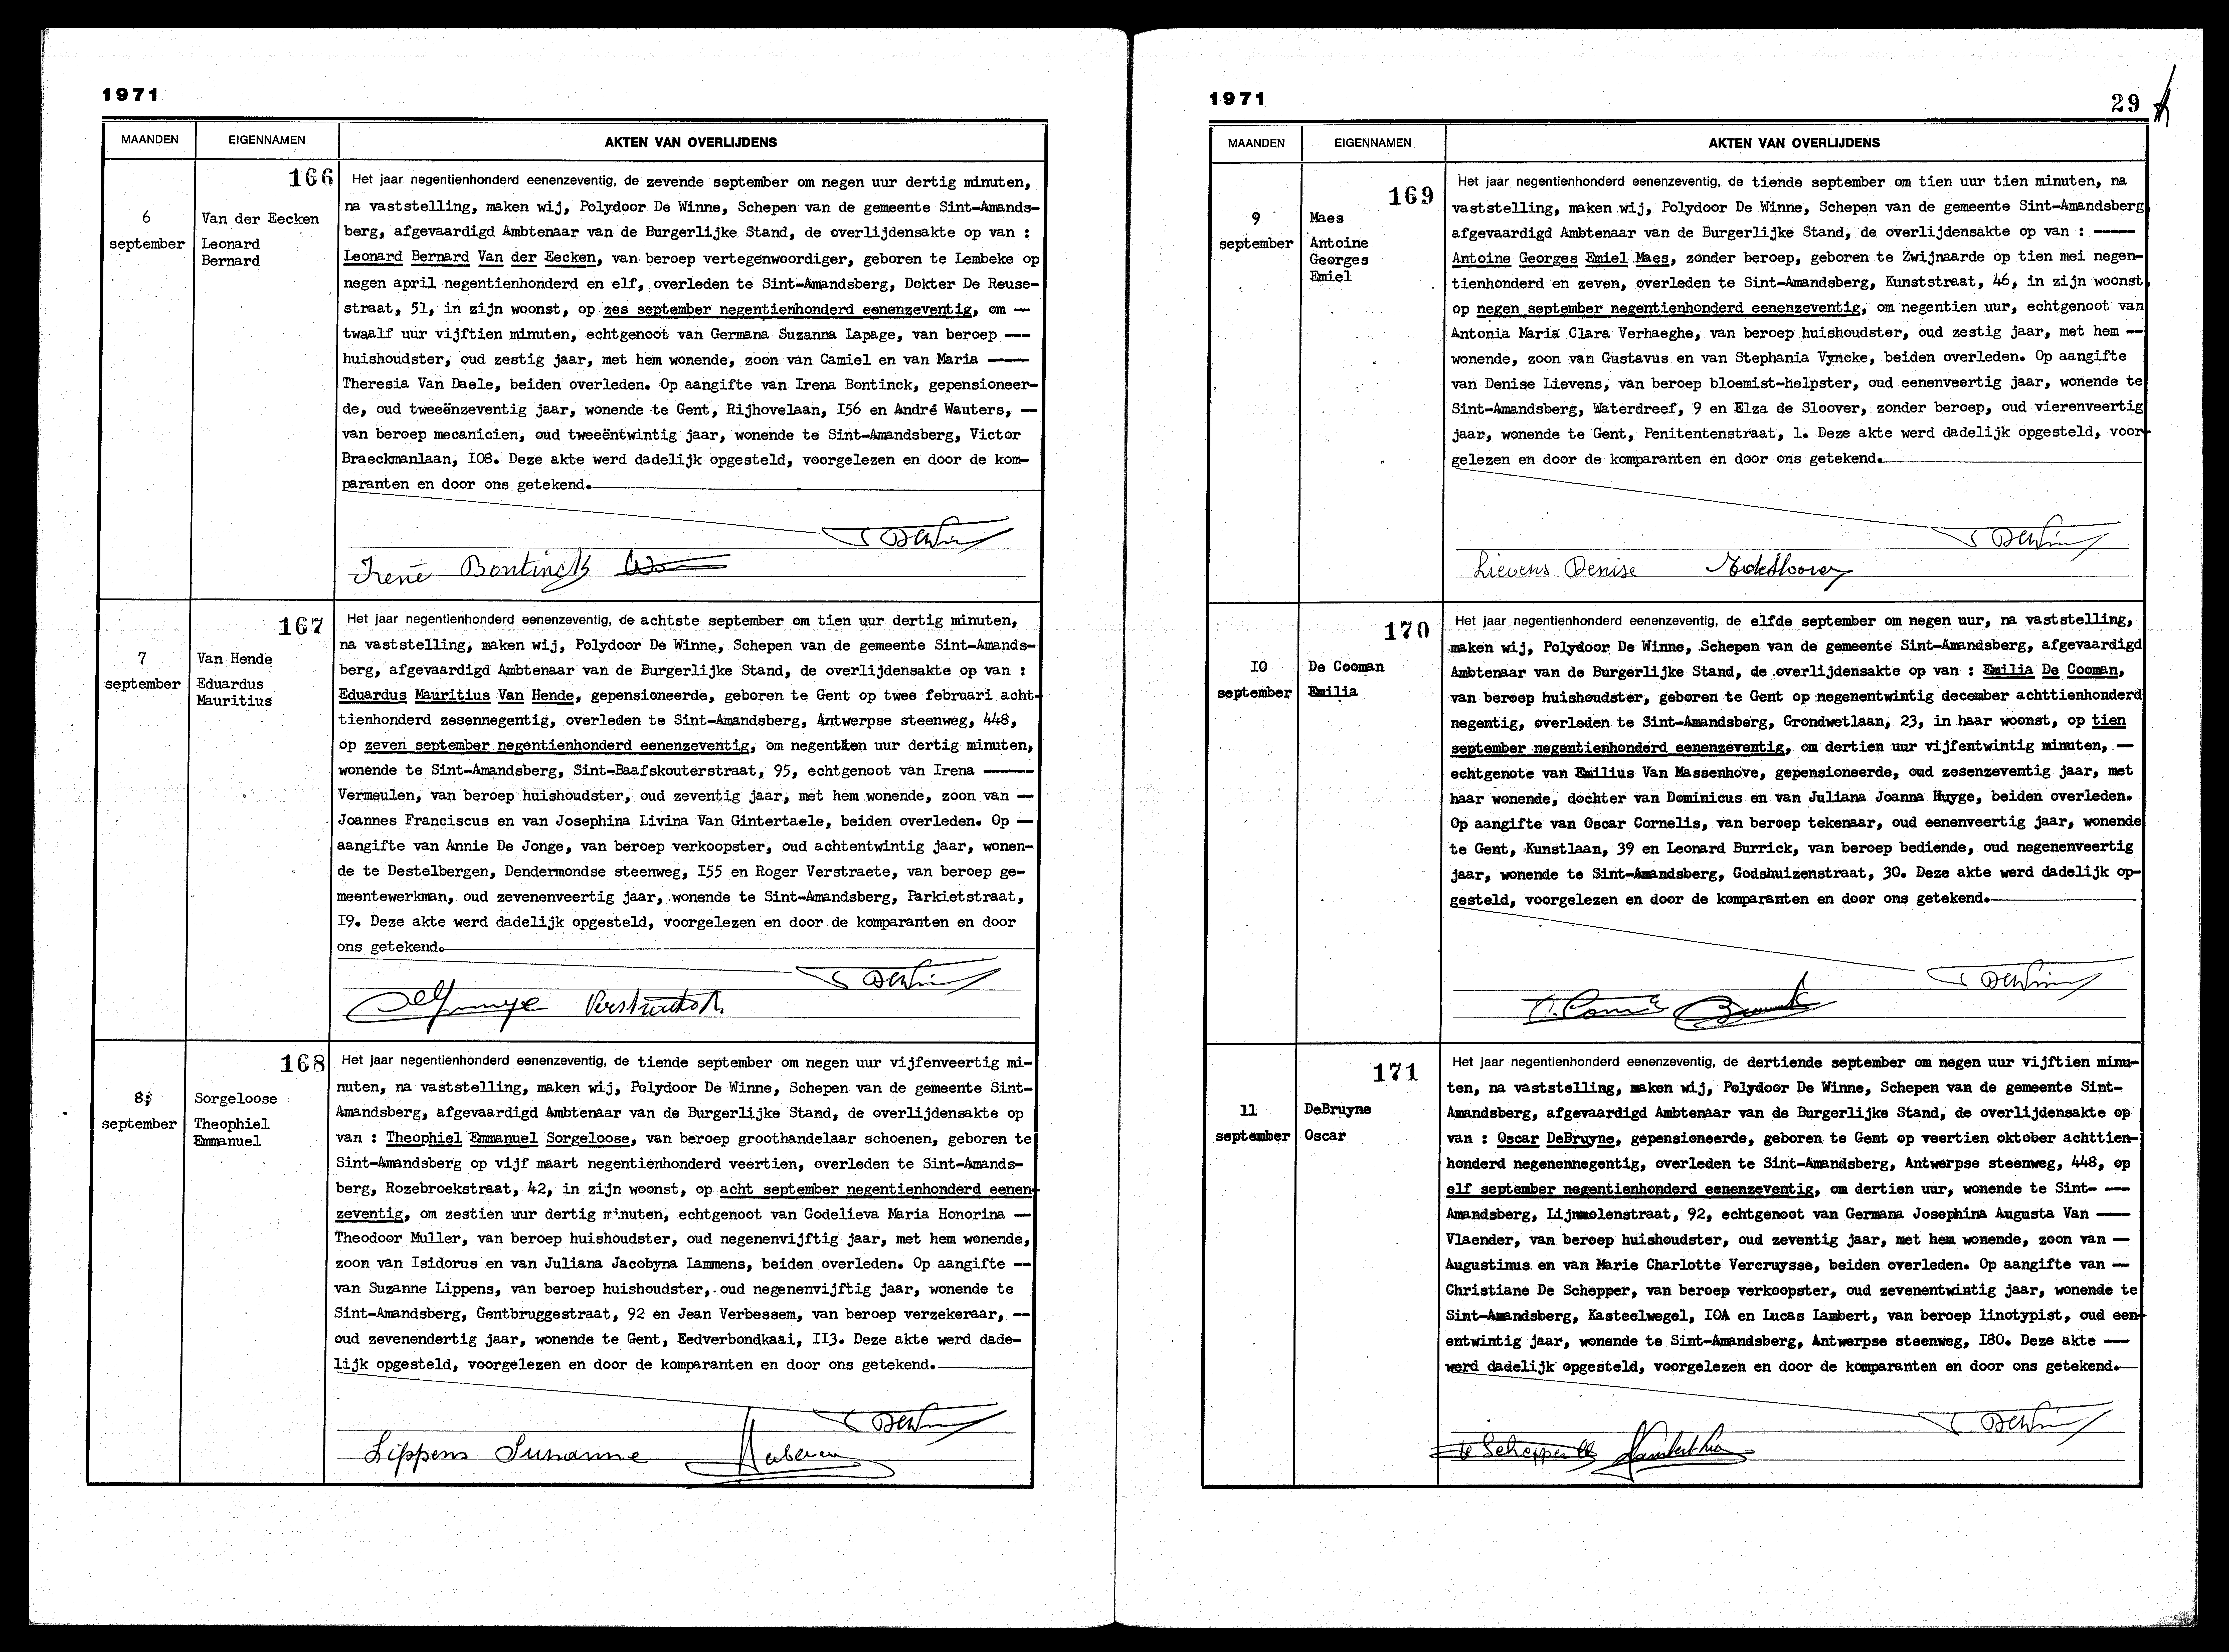 1971
MAANDEN EIGENNAMEN AKTEN VAN OVERLIJDENS
166
6
september
Van der Eecken
Leonard
Bernard
Het jaar negentienhonderd eenenzeventig, de zevende september om negen uur dertig minuten,
na vaststelling, maken wij, Polydoor De Winne, Schepen van de gemeente Sint-Amands-
berg, afgevaardigd Ambtenaar van de Burgerlijke Stand, de overlijdensakte op van :
Leonard Bernard Van der Eecken, van beroep vertegenwoordiger, geboren te Lembeke op
negen april negentienhonderd en elf, overleden te Sint-Amandsberg, Dokter De Reuse-
straat, 51, in zijn woonst, op zes september negentienhonderd eenenzeventig, om —
twaalf uur vijftien minuten, echtgenoot van Germana Suzanna Lapage, van beroep ---
huishoudster, oud zestig jaar, met hem wonende, zoon van Camiel en van Maria ----
Theresia Van Daele, beiden overleden. Op aangifte van Irena Bontinck, gepensioneer-
de, oud tweeënzeventig jaar, wonende te Gent, Rijhovelaan, I56 en André Wauters, —
van beroep mecanicien, oud tweeëntwintig jaar, wonende te Sint-Amandsberg, Victor
Braeckmanlaan, I08. Deze akte werd dadelijk opgesteld, voorgelezen en door de kom-
paranten en door ons getekend.
Irene Bontinck
167
7
september
Van Hende
Eduardus
Mauritius
Het jaar negentienhonderd eenenzeventig, de achtste september om tien uur dertig minuten,
na vaststelling, maken wij, Polydoor De Winne, Schepen van de gemeente Sint-Amands-
berg, afgevaardigd Ambtenaar van de Burgerlijke Stand, de overlijdensakte op van :
Eduardus Mauritius Van Hende, gepensioneerde, geboren te Gent op twee februari acht-
tienhonderd zesennegentig, overleden te Sint-Amandsberg, Antwerpse steenweg, 448,
op zeven september negentienhonderd eenenzeventig, om negentien uur dertig minuten,
wonende te Sint-Amandsberg, Sint-Baafskouterstraat, 95, echtgenoot van Irena -----
Vermeulen, van beroep huishoudster, oud zeventig jaar, met hem wonende, zoon van —
Joannes Franciscus en van Josephina Livina Van Gintertaele, beiden overleden. Op —
aangifte van Annie De Jonge, van beroep verkoopster, oud achtentwintig jaar, wonen-
de te Destelbergen, Dendermondse steenweg, I55 en Roger Verstraete, van beroep ge-
meentewerkman, oud zevenenveertig jaar, wonende te Sint-Amandsberg, Parkietstraat,
I9. Deze akte werd dadelijk opgesteld, voorgelezen en door de komparanten en door
ons getekend.
168
8
september
Sorgeloose
Theophiel
Emmanuel
Het jaar negentienhonderd eenenzeventig, de tiende september om negen uur vijfenveertig mi-
nuten, na vaststelling, maken wij, Polydoor De Winne, Schepen van de gemeente Sint-
Amandsberg, afgevaardigd Ambtenaar van de Burgerlijke Stand, de overlijdensakte op
van : Theophiel Emmanuel Sorgeloose, van beroep groothandelaar schoenen, geboren te
Sint-Amandsberg op vijf maart negentienhonderd veertien, overleden te Sint-Amands-
berg, Rozebroekstraat, 42, in zijn woonst, op acht september negentienhonderd eenen-
zeventig, om zestien uur dertig minuten, echtgenoot van Godelieva Maria Honorina —
Theodoor Muller, van beroep huishoudster, oud negenenvijftig jaar, met hem wonende,
zoon van Isidorus en van Juliana Jacobyna Lammens, beiden overleden. Op aangifte --
van Suzanne Lippens, van beroep huishoudster, oud negenenvijftig jaar, wonende te
Sint-Amandsberg, Gentbruggestraat, 92 en Jean Verbessem, van beroep verzekeraar, --
oud zevenendertig jaar, wonende te Gent, Eedverbondkaai, II3. Deze akte werd dade-
lijk opgesteld, voorgelezen en door de komparanten en door ons getekend.
Lippens Susanne
1971
29
MAANDEN EIGENNAMEN AKTEN VAN OVERLIJDENS
169
9
september
Maes
Antoine
Georges
Emiel
Het jaar negentienhonderd eenenzeventig, de tiende september om tien uur tien minuten, na
vaststelling, maken wij, Polydoor De Winne, Schepen van de gemeente Sint-Amandsberg,
afgevaardigd Ambtenaar van de Burgerlijke Stand, de overlijdensakte op van : ----
Antoine Georges Emiel Maes, zonder beroep, geboren te Zwijnaarde op tien mei negen-
tienhonderd en zeven, overleden te Sint-Amandsberg, Kunststraat, 46, in zijn woonst,
op negen september negentienhonderd eenenzeventig, om negentien uur, echtgenoot van
Antonia Maria Clara Verhaeghe, van beroep huishoudster, oud zestig jaar, met hem —
wonende, zoon van Gustavus en van Stephania Vyncke, beiden overleden. Op aangifte
van Denise Lievens, van beroep bloemist-helpster, oud eenenveertig jaar, wonende te
Sint-Amandsberg, Waterdreef, 9 en Elza de Sloover, zonder beroep, oud vierenveertig
jaar, wonende te Gent, Penitentenstraat, 1. Deze akte werd dadelijk opgesteld, voor-
gelezen en door de komparanten en door ons getekend.
Lievens Denise
170
I0
september
De Cooman
Emilia
Het jaar negentienhonderd eenenzeventig, de elfde september om negen uur, na vaststelling,
maken wij, Polydoor De Winne, Schepen van de gemeente Sint-Amandsberg, afgevaardigd
Ambtenaar van de Burgerlijke Stand, de overlijdensakte op van : Emilia De Cooman,
van beroep huishoudster, geboren te Gent op negenentwintig december achttienhonderd
negentig, overleden te Sint-Amandsberg, Grondwetlaan, 23, in haar woonst, op tien
september negentienhonderd eenenzeventig, om dertien uur vijfentwintig minuten, —
echtgenote van Emilius Van Massenhove, gepensioneerde, oud zesenzeventig jaar, met
haar wonende, dochter van Dominicus en van Juliana Joanna Huyge, beiden overleden.
Op aangifte van Oscar Cornelis, van beroep tekenaar, oud eenenveertig jaar, wonende
te Gent, Kunstlaan, 39 en Leonard Burrick, van beroep bediende, oud negenenveertig
jaar, wonende te Sint-Amandsberg, Godshuizenstraat, 30. Deze akte werd dadelijk op-
gesteld, voorgelezen en door de komparanten en door ons getekend.
171
11
september
DeBruyne
Oscar
Het jaar negentienhonderd eenenzeventig, de dertiende september om negen uur vijftien minu-
ten, na vaststelling, maken wij, Polydoor De Winne, Schepen van de gemeente Sint-
Amandsberg, afgevaardigd Ambtenaar van de Burgerlijke Stand, de overlijdensakte op
van : Oscar DeBruyne, gepensioneerde, geboren te Gent op veertien oktober achttien-
honderd negenennegentig, overleden te Sint-Amandsberg, Antwerpse steenweg, 448, op
elf september negentienhonderd eenenzeventig, om dertien uur, wonende te Sint- ---
Amandsberg, Lijnmolenstraat, 92, echtgenoot van Germana Josephina Augusta Van ----
Vlaender, van beroep huishoudster, oud zeventig jaar, met hem wonende, zoon van --
Augustinus en van Marie Charlotte Vercruysse, beiden overleden. Op aangifte van --
Christiane De Schepper, van beroep verkoopster, oud zevenentwintig jaar, wonende te
Sint-Amandsberg, Kasteelwegel, I0A en Lucas Lambert, van beroep linotypist, oud een-
entwintig jaar, wonende te Sint-Amandsberg, Antwerpse steenweg, I80. Deze akte ---
werd dadelijk opgesteld, voorgelezen en door de komparanten en door ons getekend.